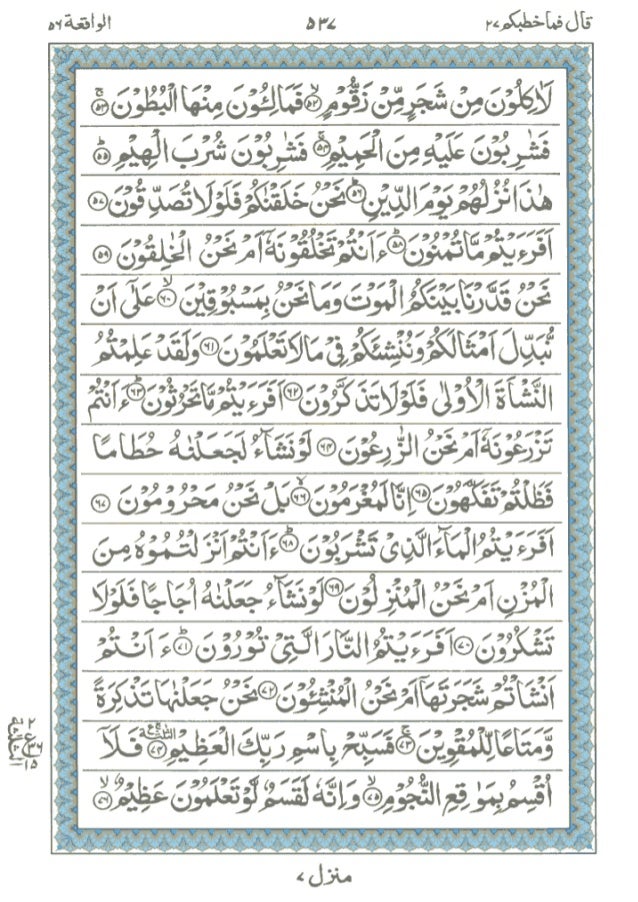 قال فما خطبكم ٢٧ ٥٣٧ الواقعة ٥٦
لَاٰكِلُوۡنَ مِنۡ شَجَرٍ مِّنۡ زَقُّوۡمٍ ۙ‏﴿۵۲﴾ فَمَالِـُٔوۡنَ مِنۡهَا الۡبُطُوۡنَ​ ۚ‏﴿۵۳﴾
فَشٰرِبُوۡنَ عَلَيۡهِ مِنَ الۡحَمِيۡمِ​ ۚ‏﴿۵۴﴾ فَشٰرِبُوۡنَ شُرۡبَ الۡهِيۡمِؕ‏﴿۵۵﴾
هٰذَا نُزُلُهُمۡ يَوۡمَ الدِّيۡنِؕ‏﴿۵۶﴾ نَحۡنُ خَلَقۡنٰكُمۡ فَلَوۡلَا تُصَدِّقُوۡنَ‏﴿۵۷﴾
اَفَرَءَيۡتُمۡ مَّا تُمۡنُوۡنَؕ‏﴿۵۸﴾ ءَاَنۡتُمۡ تَخۡلُقُوۡنَهٗۤ اَمۡ نَحۡنُ الۡخٰلِقُوۡنَ‏﴿۵۹﴾
نَحۡنُ قَدَّرۡنَا بَيۡنَكُمُ الۡمَوۡتَ وَمَا نَحۡنُ بِمَسۡبُوۡقِيۡنَۙ‏﴿۶۰﴾ عَلٰٓى اَنۡ
نُّبَدِّلَ اَمۡثَالَكُمۡ وَنُنۡشِئَكُمۡ فِىۡ مَا لَا تَعۡلَمُوۡنَ‏﴿۶۱﴾ وَلَقَدۡ عَلِمۡتُمُ
النَّشۡاَةَ الۡاُوۡلٰى فَلَوۡلَا تَذَكَّرُوۡنَ‏﴿۶۲﴾ اَفَرَءَيۡتُمۡ مَّا تَحۡرُثُوۡنَؕ‏﴿۶۳﴾ ءَاَنۡتُمۡ
تَزۡرَعُوۡنَهٗۤ اَمۡ نَحۡنُ الزّٰرِعُوۡنَ‏﴿۶۴﴾ لَوۡ نَشَآءُ لَجَعَلۡنٰهُ حُطَامًا
فَظَلۡتُمۡ تَفَكَّهُوۡنَ‏﴿۶۵﴾ اِنَّا لَمُغۡرَمُوۡنَۙ‏﴿۶۶﴾ بَلۡ نَحۡنُ مَحۡرُوۡمُوۡنَ‏﴿۶۷﴾
اَفَرَءَيۡتُمُ الۡمَآءَ الَّذِىۡ تَشۡرَبُوۡنَؕ‏﴿۶۸﴾ ءَاَنۡتُمۡ اَنۡزَلۡـتُمُوۡهُ مِنَ
الۡمُزۡنِ اَمۡ نَحۡنُ الۡمُنۡزِلُوۡنَ‏﴿۶۹﴾ لَوۡ نَشَآءُ جَعَلۡنٰهُ اُجَاجًا فَلَوۡلَا
تَشۡكُرُوۡنَ‏﴿۷۰﴾ اَفَرَءَيۡتُمُ النَّارَ الَّتِىۡ تُوۡرُوۡنَؕ‏﴿۷۱﴾ ءَاَنۡتُمۡ
اَنۡشَاۡتُمۡ شَجَرَتَهَاۤ اَمۡ نَحۡنُ الۡمُنۡشِـُٔوۡنَ‏﴿۷۲﴾ نَحۡنُ جَعَلۡنٰهَا تَذۡكِرَةً
وَّمَتَاعًا لِّلۡمُقۡوِيۡنَ​ۚ‏﴿۷۳﴾ فَسَبِّحۡ بِاسۡمِ رَبِّكَ الۡعَظِيۡمِ‏﴿۷۴﴾ فَلَاۤ
اُقۡسِمُ بِمَوٰقِعِ النُّجُوۡمِۙ‏﴿۷۵﴾ وَاِنَّهٗ لَقَسَمٌ لَّوۡ تَعۡلَمُوۡنَ عَظِيۡمٌۙ‏﴿۷۶﴾
منزل ٧